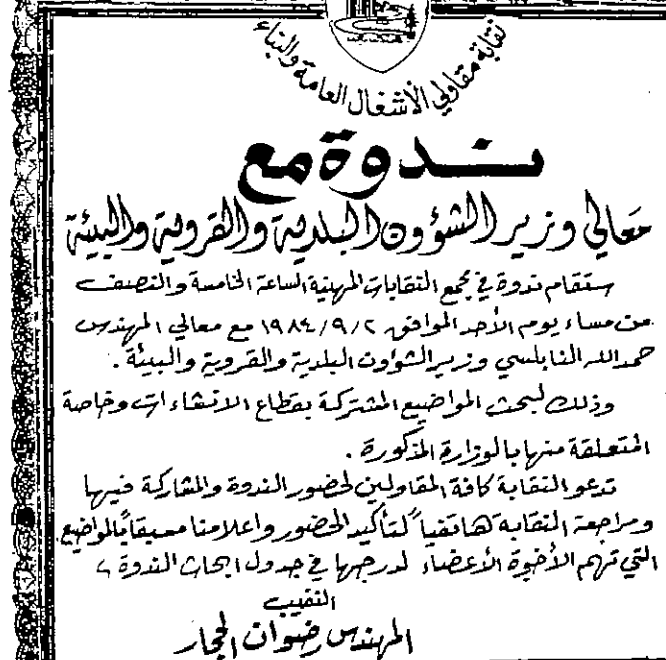 نقابة مقاولي الأشغال العامة والبناء
ندوة مع
معالي وزير الشؤون البلدية والقروية والبيئة
ستقام ندوة في مجمع النقابات المهنية الساعة الخامسة والنصف
من مساء يوم الأحد الموافق ١٩٨٤/٩/٢ مع معالي المهندس
حمدالله النابلسي وزير الشؤون البلدية والقروية والبيئة .
وذلك لبحث المواضيع المشتركة بقطاع الانشاءات وخاصة
المتعلقة منها بالوزارة المذكورة .
تدعو النقابة كافة المقاولين لحضور الندوة والمشاركة فيها
ومراجعة النقابة هاتفياً لتأكيد الحضور واعلامنا مسبقاً بالمواضيع
التي تهم الأخوة الأعضاء لدرجها في جدول ابحاث الندوة ،
النقيب
المهندس رضوان الحجار